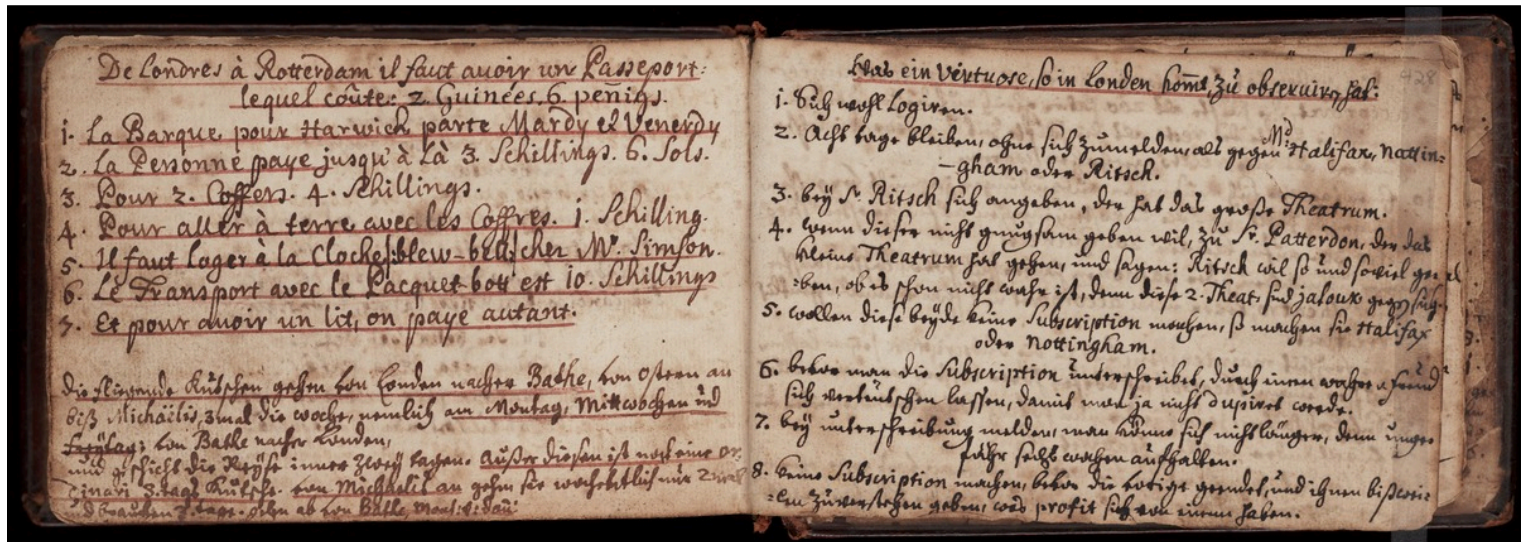 De Londres à Rotterdam il faut avoir un Passeport:
lequel coûte: 2. Guinées. 6. peñigs.
1. La Barque pour Harwick parte Mardy et Venerdy
2. La Personne paye jusqu'à Là 3. Schillings. 6. Sols.
3. Pour 2. Coffers. 4. Schillings.
4. Pour aller à terre avec les Coffres. 1. Schilling.
5. Il faut loger à la Cloche |:blew-bell:| chez Mr. Simson.
6. Le Transport avec le Pacquet-bott est 10. Schillings
7. Et pour avoir un lit, on paye autant.
Die fliegende Kutschen gehen von Londen nacher Bathe, von Ostern an
biß Michäelis, 3mal die woche, nemlich am Montag, Mittwochen und
Freÿtag; von Bathe nacher Londen,
und geschicht die Reyse inner zweÿ tagen. Außer diesen ist noch eine or-
dinari 3.tags Kutsche. von Michaelis an gehen sie wochentlich nur
und brauchen tage. gehn ab von Bathe,
428
Was ein Virtuose, so in Londen kom̃t, zu observiren hat:
1. Sich wohl Logiren.
2. Acht tage bleiben, ohne sich zumelden, als gegen Md: Halifax, Nattin=
-gham oder Ritsch.
3. beÿ Sr. Ritsch sich angeben, der hat das große Theatrum.
4. wenn dieser nicht gnugsam geben wil, zu Sr. Patterdon, der das
kleine Theatrum hat gehen, und sagen: Ritsch wil so und soviel ge
=ben, ob es schon nicht wahr ist, denn diese 2. Theat: sind jaloux gegen sich.
5. wollen diese beÿde keine Subscription machen, so machen sie Halifax
oder Nottingham.
6. bevor man die Subscription unterschreibet, durch einen wahren freund
sich verteutschen lassen, damit man ja nicht dupiret werde.
7. beÿ unterschreibung melden, man könne sich nicht länger, denn unge
fähr sechs wochen aufhalten.
8. keine Subscription machen, bevor die vorige geendet, und ihnen bißwei=
=len zuverstehen geben, was profit sich von einem haben.